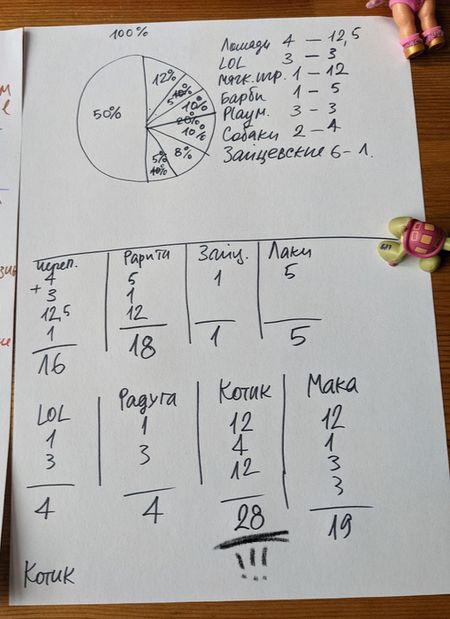 100%
Лошади 4 – 12,5
LOL 3 – 3
мягк. игр. 1 – 12
Барби 1 – 5
Playm. 3 – 3
Собаки 2 – 4
Зайцевские 6 – 1.
50%
12%
5 10%
10%
20%
10%
8%
5%
10%
Череп. Рарити Зайц. Лаки
4 5 1 5
+ 3 1
12,5 12
1
16 18 1 5
LOL Радуга Котик Мака
1 1 12 12
3 3 4 1
12 3
3
4 4 28 19
!!!
Котик